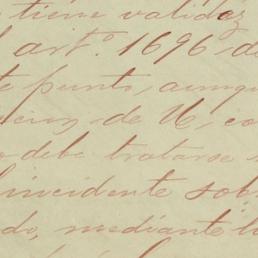 tiene validez
l artº. 1696 de
te punto, aunqu
cion de U, co
o debe tratarse
incidente sob
do, mediante l